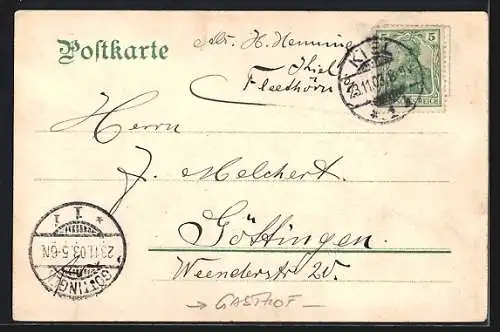 Postkarte
Abs. H. Hemming
Kiel
Fleethörn
5 5
REICH
KIEL
23.11.03.
* 1
Herrn
J. Melchert.
Göttingen.
Weenderstr.
* I I
23.11.03.5-6N
GÖTTINGEN
→ GASTHOF -